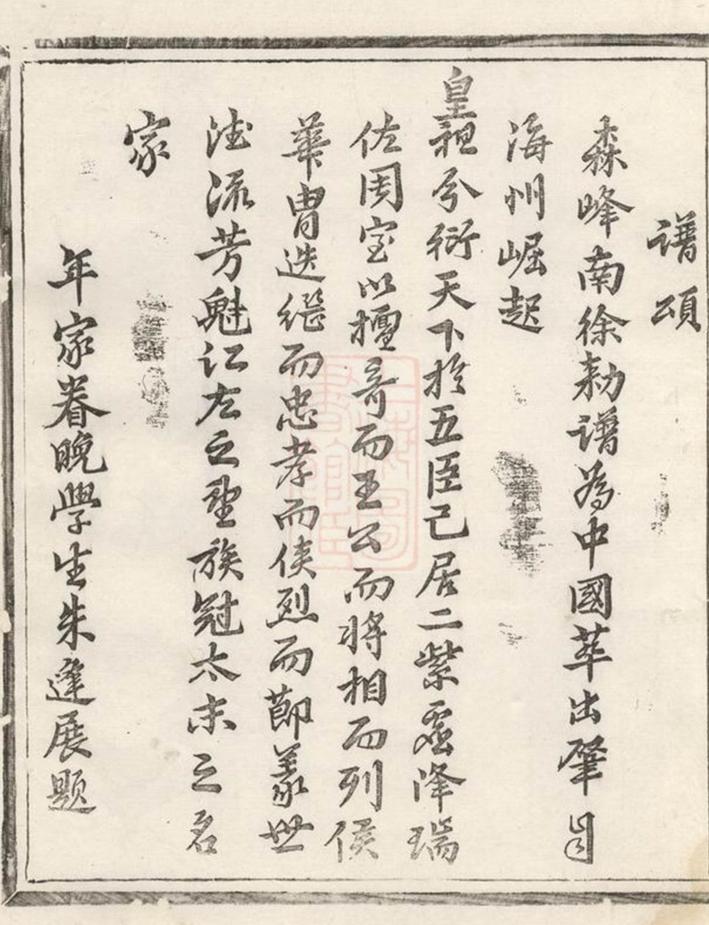 譜頌
森峰南徐勑譜為中國萃出肇自
海州崛起
皇祖兮衍天下於五臣己居二紫雲降瑞
佐周室以擅奇而王公而將相而列侯
華冑迭繼而忠孝而俠烈而節義世
流芳魁江左之望族冠太末之名
家
年家眷晚學生朱逢展题